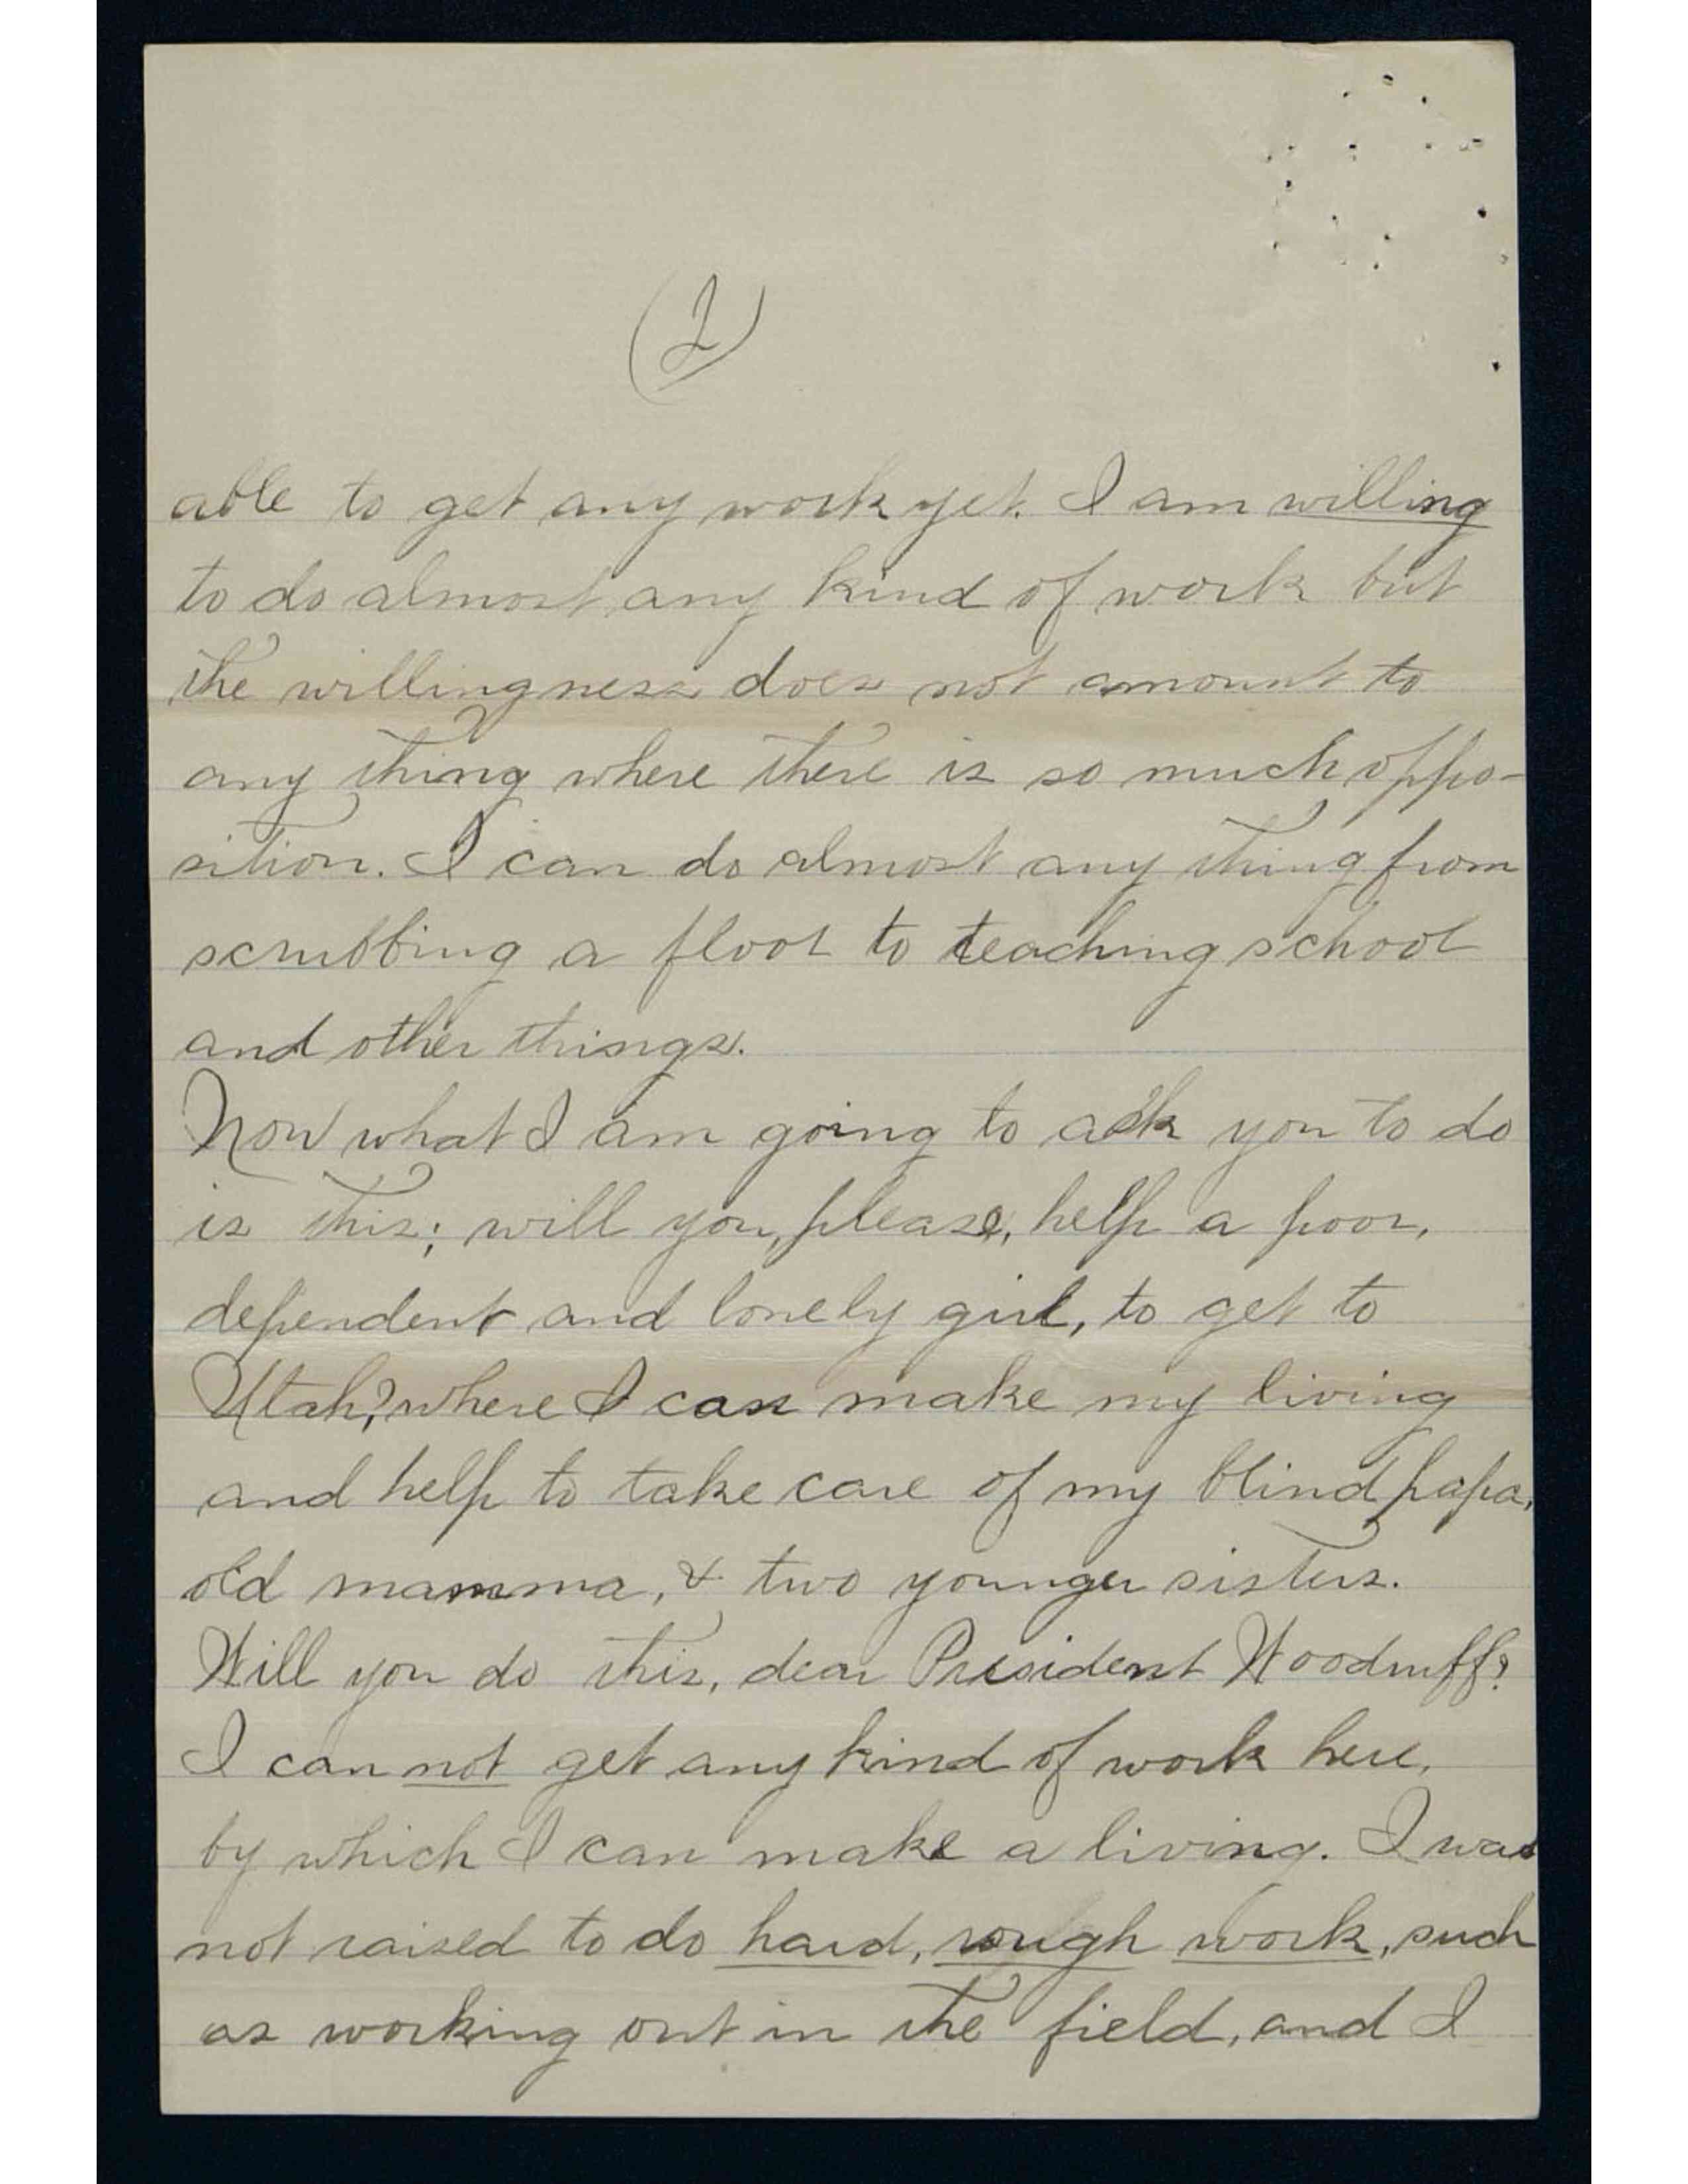 (2)
able to get any work yet. I am willing
to do almost any kind of work but
the willingness does not amount to
any thing where there is so much oppo-
sition. I can do almost any thing from
scrubbing a floor to teaching school
and other things.
Now what I am going to ask you to do
is this; will you, please, help a poor,
dependent and lonely girl, to get to
Utah? where I can make my living
and help to take care of my blind papa,
old mamma, & two younger sisters.
Will you do this, dear President Woodruff?
I can not get any kind of work here,
by which I can make a living. I was
not raised to do hard, rough work, such
as working out in the field, and I